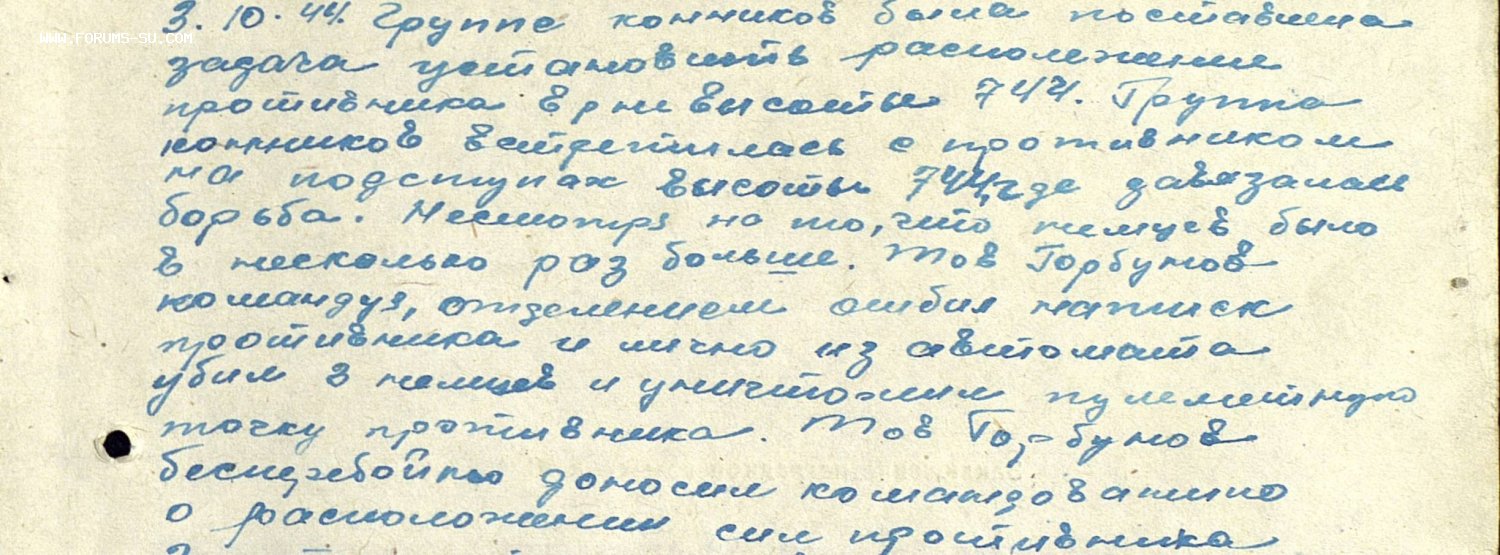 3.10.44. Группе конников была поставлена
WWW.FORUMS-SU.COM
задача установить расположение
противника в р-не высоты 744. Группа
конников встретилась с противником
на подступах высоты 744, где завязалась
борьба. Несмотря на то, что немцев было
в несколько раз больше. Тов Горбунов
командуя, отделением отбил натиск
противника и лично из автомата
убил 3 немцев и уничтожил пулеметную
точку противника. Тов Горбунов
бесперебойно доносил командованию
о расположении сил противника